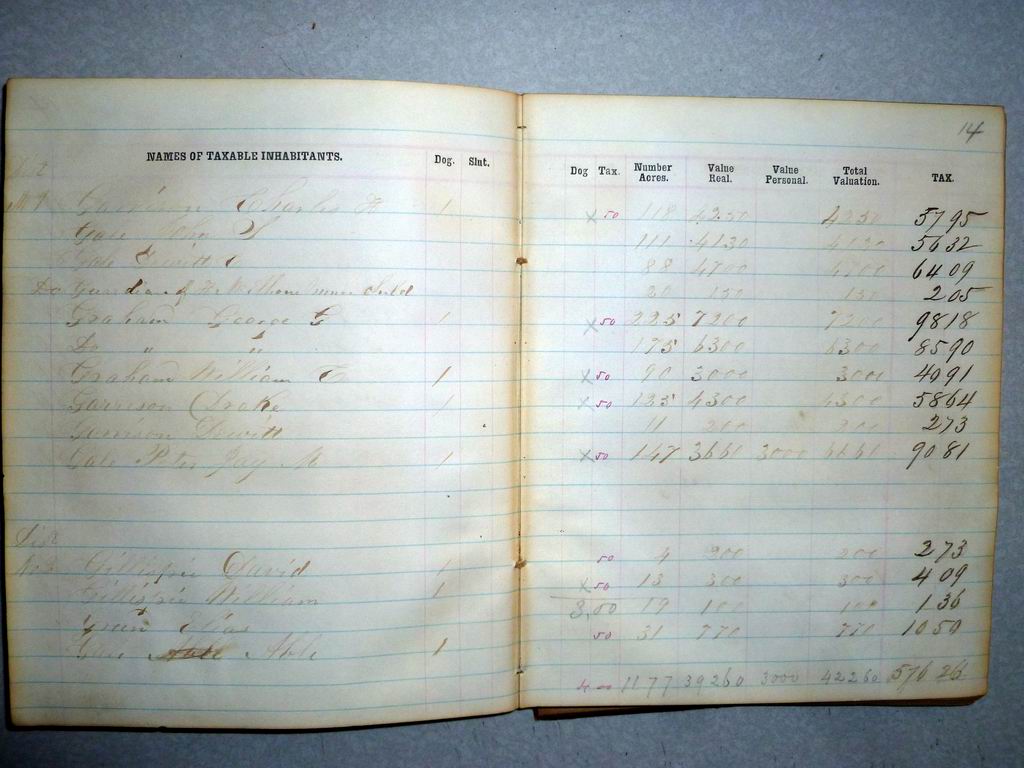 14
NAMES OF TAXABLE INHABITANTS. Dog. Slut. Dog Tax. Number Acres. Value Real. Value Personal. Total Valuation. TAX.
Charles H 1 x 50 118 4250 4250 57 95
Gale S 111 4130 4130 56 32
Gale Dewitt C 88 4700 4700 64 09
Do Guardian of 20 150 150 2 05
Graham George G 1 x 50 225 7200 7200 98 18
Do " " 175 6300 6300 85 90
Graham William 1 x 50 90 3000 3000 40 91
Garrison Drake 1 x 50 135 4300 4300 58 64
Garrison Dewitt 11 200 200 2 73
Gale Peter Jay M 1 x 50 147 3660 3000 6660 90 81
Dist
Gillispie David 1 50 4 200 200 2 73
Gillispie William 1 x 50 13 300 300 4 09
Green Elias 3,00 19 100 100 1 36
Able 1 50 31 770 770 10 50
4 00 1177 39260 3000 42260 576 26